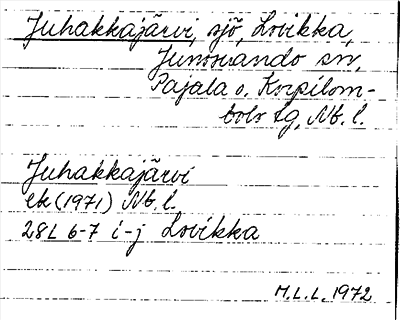 Juhakkajärvi, sjö, Lovikka,
Junosuando sn,
Pajala o. Korpilom-
bolo tg, Nb. l.
Juhakkajärvi
ek (1971) Nb. l.
28L 6-7 i-j Lovikka
M.L.L. 1972